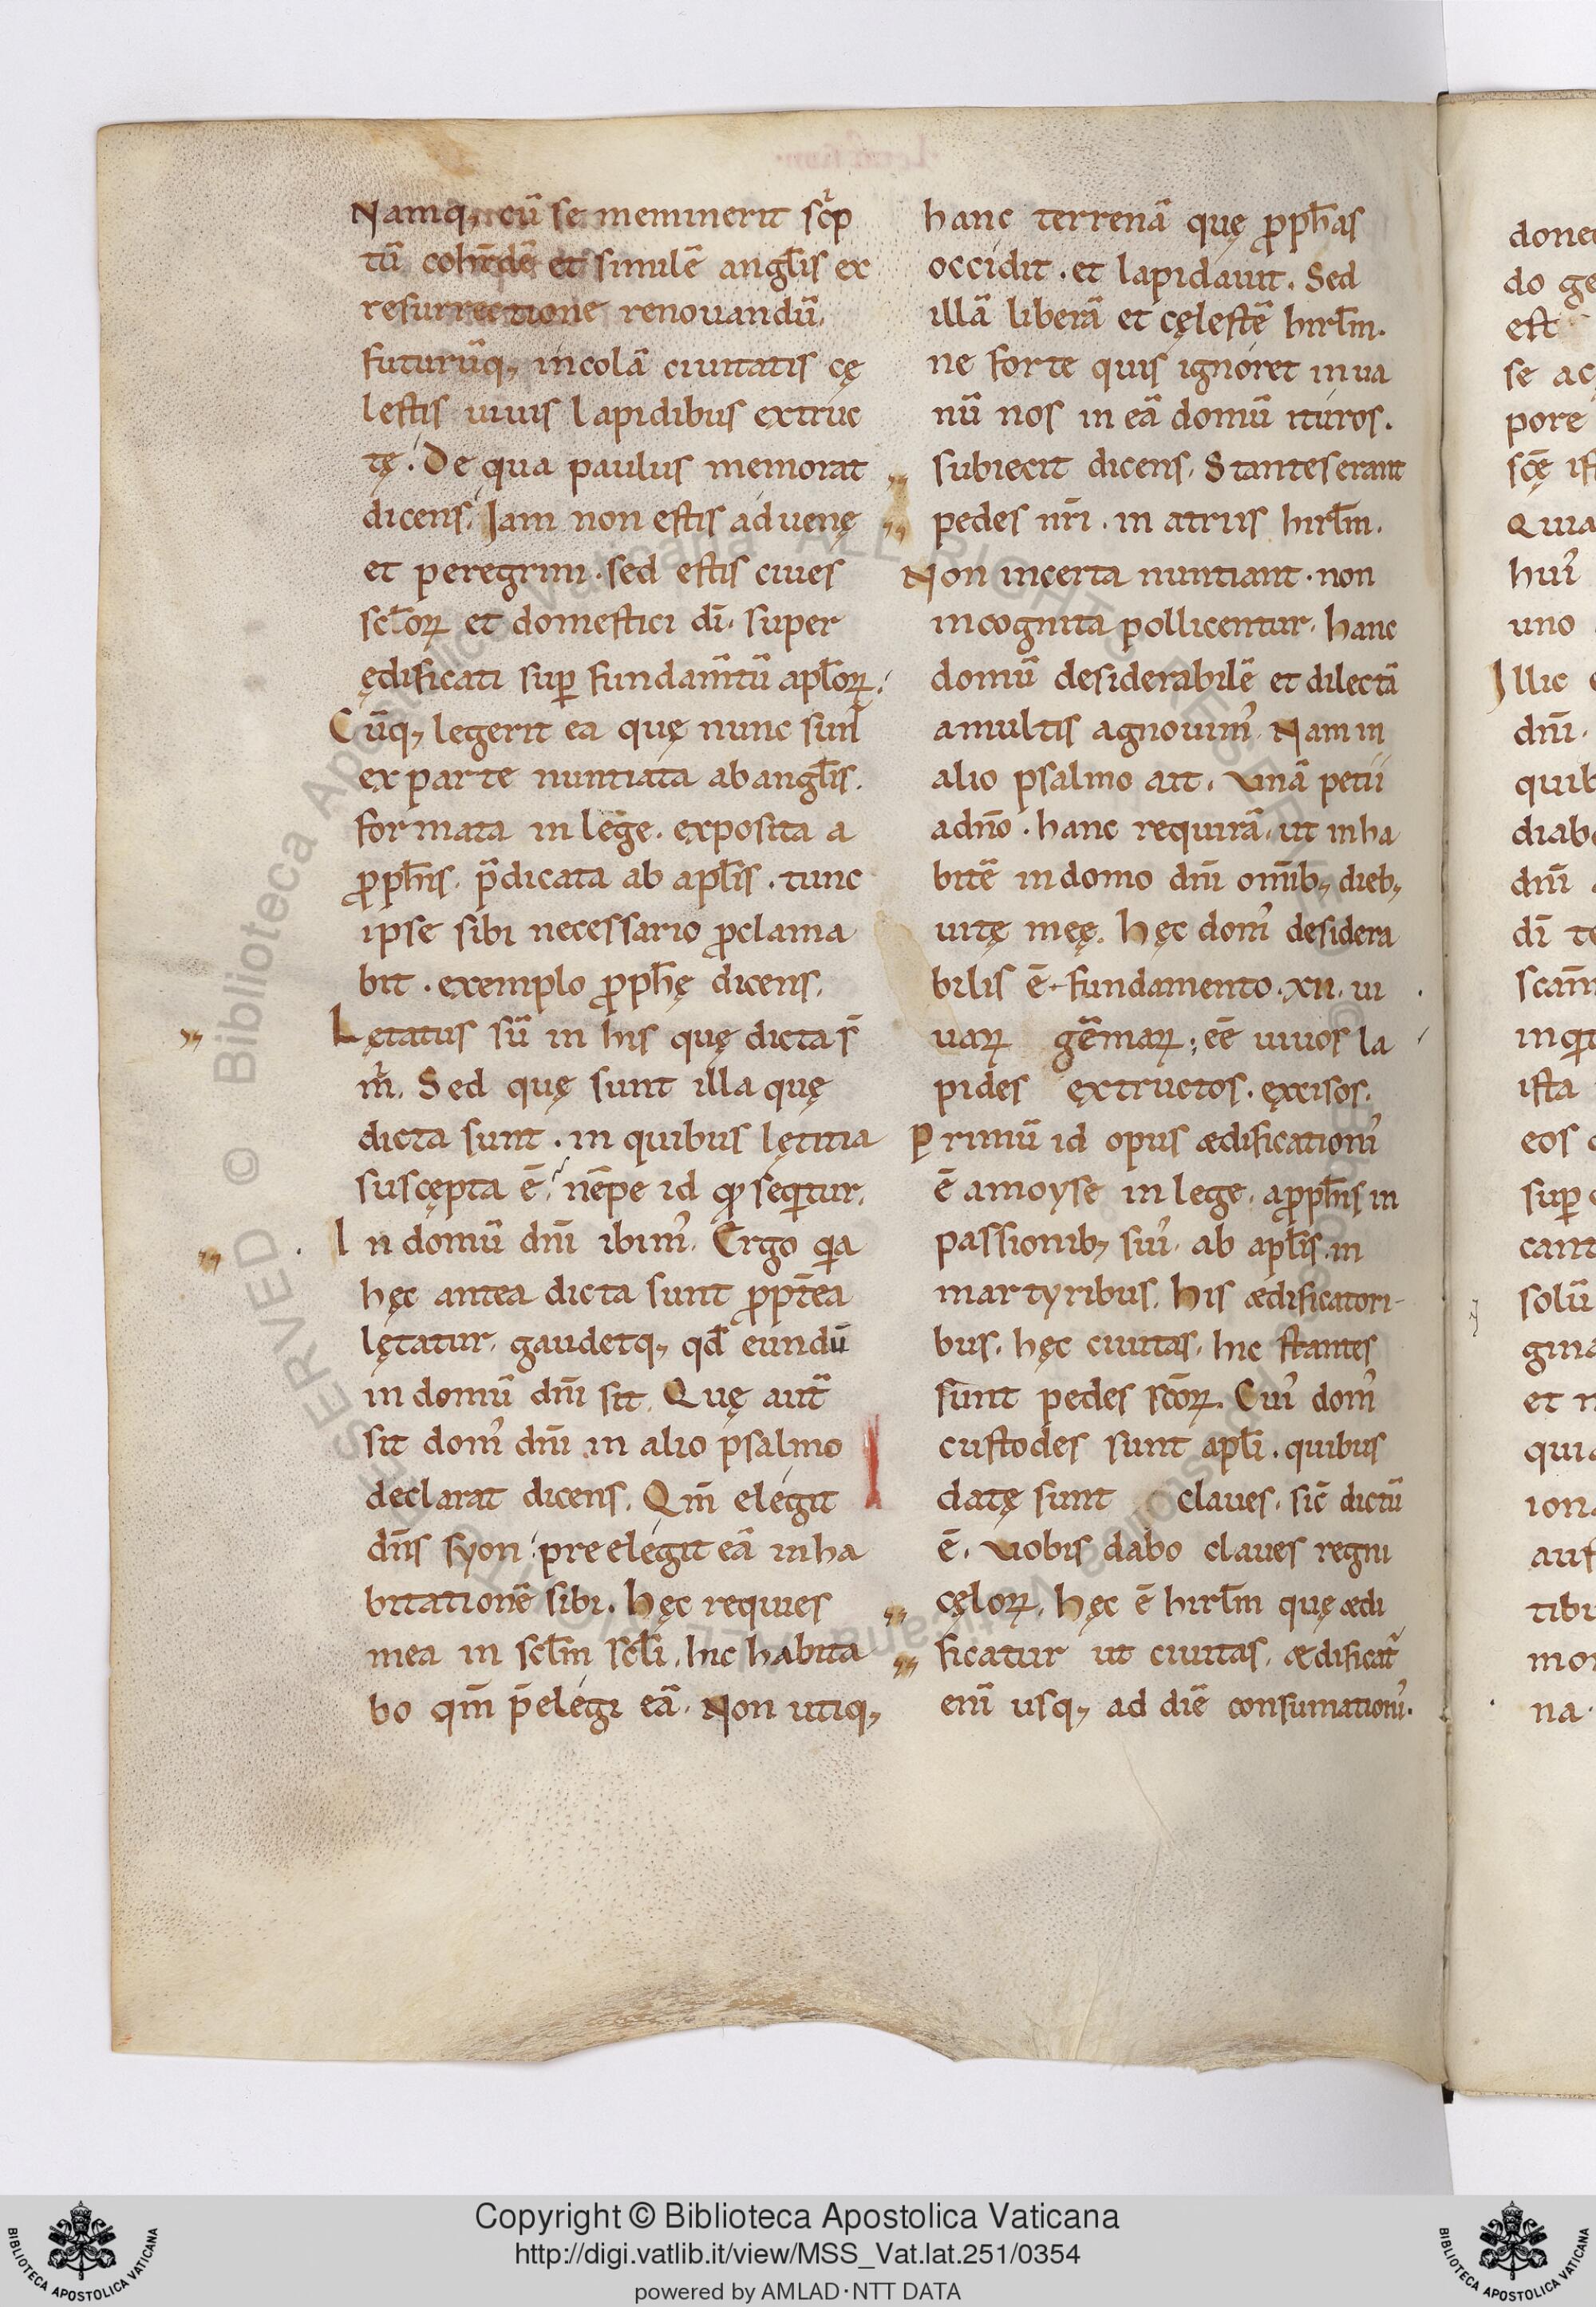 Namq, cũ se meminerit scͬp
tũ cohr̄dē et similē angl̄is ex
resurrectione renouandũ.
futurũq, incolã ciuitatis cę
lestis uiuis lapidibus extruc
tę. De qua paulus memorat
dicens. Iam non estis aduenę
et peregrini. sed estis ciues
scl̄oꝝ et domestici dī. super
ędificati suꝑ fundam̄tũ apl̄oꝝ.
Cũq, legerit ea quę nunc sunt
ex parte nuntiata ab angl̄is.
formata in lege. exposita a
ꝓph̄is. p̄dicata ab apl̄is. tunc
ipse sibi necessario ꝓclama
bit. exemplo ꝓph̄ę dicens.
Lętatus sũ in his quę dicta s̄
m̄. Sed quę sunt illa quę
dicta sunt. in quibus lętitia
suscępta ē. nēpe id qđ seqͥtur.
In domũ dn̄i ibim᾽. Ergo qͥa
hęc antea dicta sunt ꝓpt̄ea
lętatur. gaudetq, qd̄ eundũ
in domũ dn̄i sit. Quę aut̃
sit dom᾽ dn̄i in alio psalmo
declarat dicens. Qm̄ elegit
dn̄s syon. preelegit eã inha
bitationē sibi. Hęc requies
mea in scl̄m scl̄i. hic habita
bo qm̄ p̄elegi eã. Non utiq,
hanc terrenã quę ꝓph̄as
occidit. et lapidauit. Sed
illã liberã et cęlestē hirl̄m.
ne forte quis ignoret in ua
nũ nos in eã domũ ituros.
subiecit dicens. Stantes erant
pedes nr̄i. in atriis hirl̄m.
Non incerta nuntiant. non
incognita pollicentur. hanc
domũ desiderabilē et dilectã
a multis agnouim᾽. Nam in
alio psalmo ait. Vnã petii
a dn̄o. hanc requirã. ut inha
bitē in domo dn̄i om̄ib, dieb,
uitę meę. Hęc dom᾽ desidera
bilis ē. fundamento. xii. ui
uaꝝ gēmaꝝ; eē uiuos la
pides ęxtructos. ęxcisos.
Primũ id opus ædificationi᾽
ē a moyse in lege. a ꝓph̄is in
passionib, sui᾽. ab apl̄is. in
martyribus. His ædificatori-
bus. hęc ciuitas. hic stantes
sunt pedes sc̄oꝝ. Cui᾽ dom᾽
custodes sunt apl̄i. quibus
datę sunt claues. sic̄ dictũ
ē. Vobis dabo claues regni
cęloꝝ. Hęc ē hirl̄m quę ædi
ficatur ut ciuitas. ædificat᾽
enī usq, ad diē consumationi᾽.
Copyright © Biblioteca Apostolica Vaticana
http://digi.vatlib.it/view/MSS_Vat.lat.251/0354
powered by AMLAD·NTT DATA
BIBLIOTECA APOSTOLICA VATICANA
BIBLIOTECA APOSTOLICA VATICANA